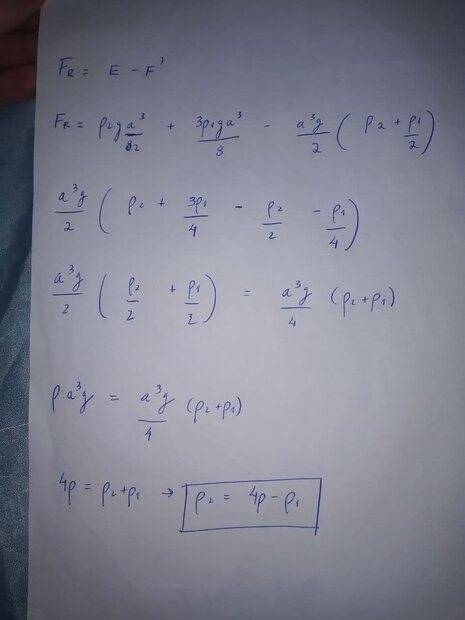 F_R = E - F'
F_R = ρ₂ga³/2 + 3ρ₁ga³/8 - a³g/2 ( ρ₂ + ρ₁/2 )
a³g/2 ( ρ₂ + 3ρ₁/4 - ρ₂/2 - ρ₁/4 )
a³g/2 ( ρ₂/2 + ρ₁/2 ) = a³g/4 (ρ₂+ρ₁)
ρ.a³g = a³g/4 (ρ₂+ρ₁)
4ρ = ρ₂+ρ₁ → ρ₂ = 4ρ-ρ₁